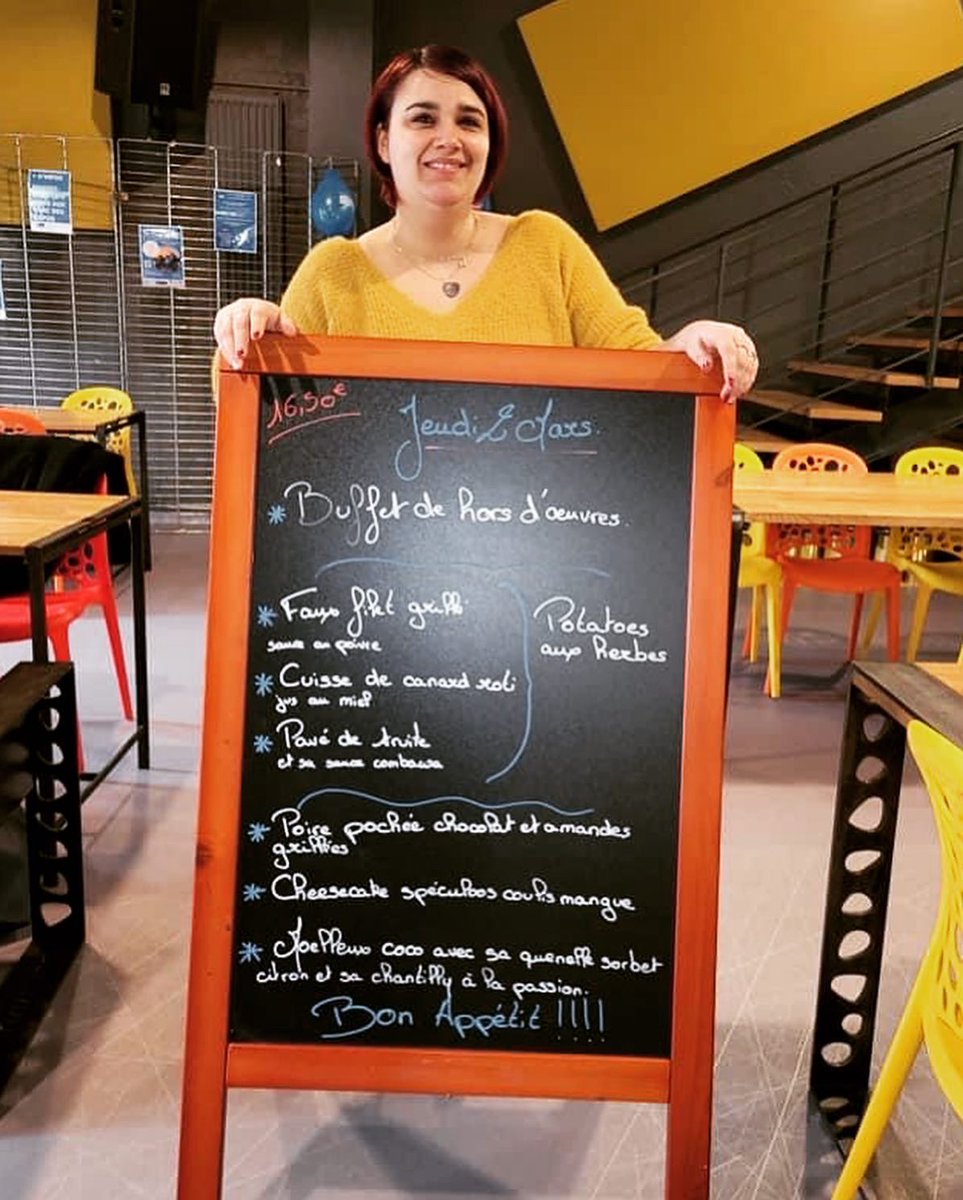 16,50€
Jeudi 2 Mars.
* Buffet de hors d'oeuvres.
* Faux filet grillé
sauce au poivre
* Cuisse de canard roti
jus au miel
* Pavé de truite
et sa sauce combawa
Potatoes
aux herbes
* Poire pochée chocolat et amandes
grillées
* Cheesecake spéculoos coulis mangue
* Moelleux coco avec sa quenelle sorbet
citron et sa chantilly à la passion.
Bon Appétit !!!!